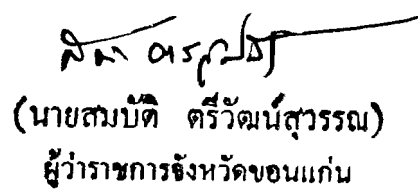 (นายสมบัติ ตรีวัฒน์สุวรรณ)
ผู้ว่าราชการจังหวัดขอนแก่น